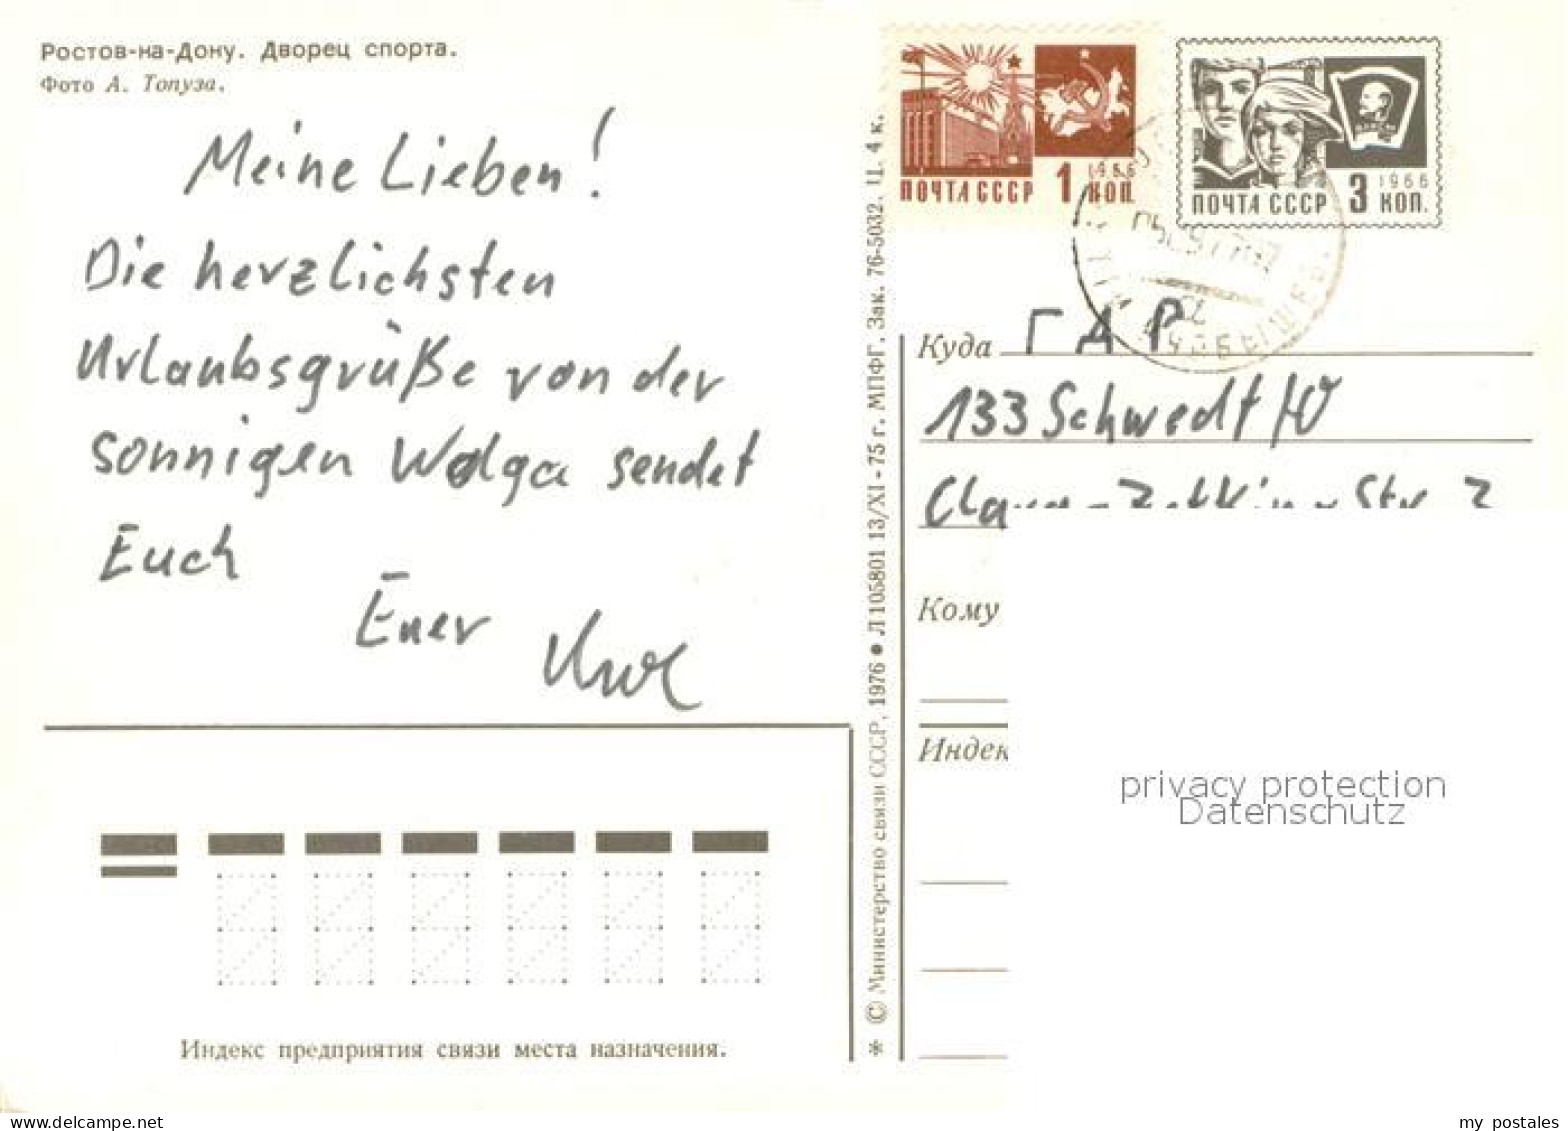 Ростов-на-Дону. Дворец спорта.
Фото А. Топуза.
Meine Lieben!
Die herzlichsten
Urlaubsgrüße von der
sonnigen Wolga sendet
Euch
Euer Uwe
© Министерство связи СССР, 1976 ● Л 105801 13/XI - 75 г. МПФГ. Зак. 76-5032. Ц. 4 к.
ПОЧТА СССР 1 КОП.
1966
ПОЧТА СССР 3 КОП.
1966
Куда ГДР
133 Schwedt/O
Clara-Zetkin-Str.
Кому
Индек
privacy protection
Datenschutz
Индекс предприятия связи места назначения.
my postales